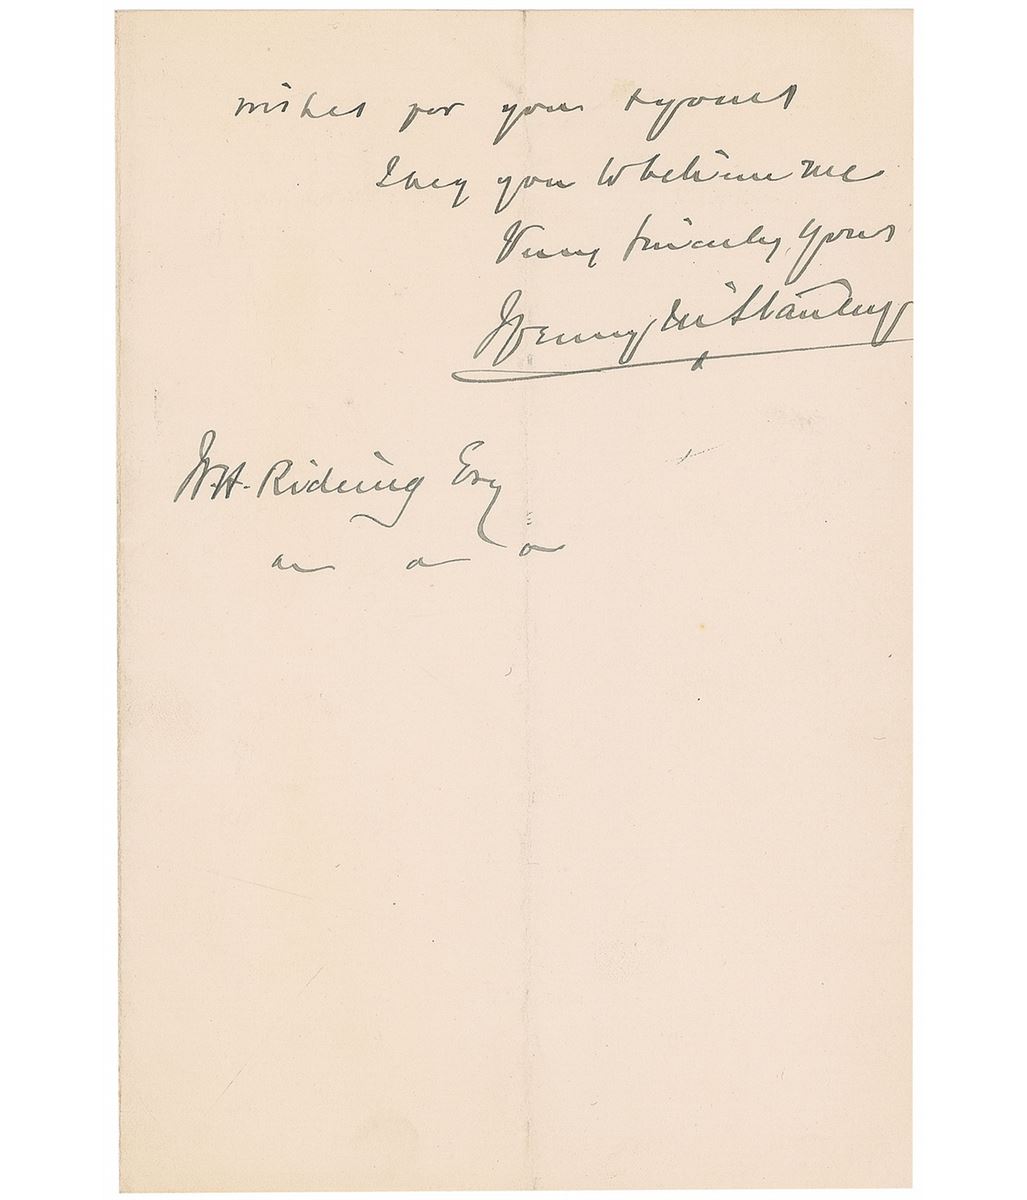 wishes for you & yours
I beg you to believe me
Very sincerely yours
Henry M Stanley
W.H. Rideing Esq